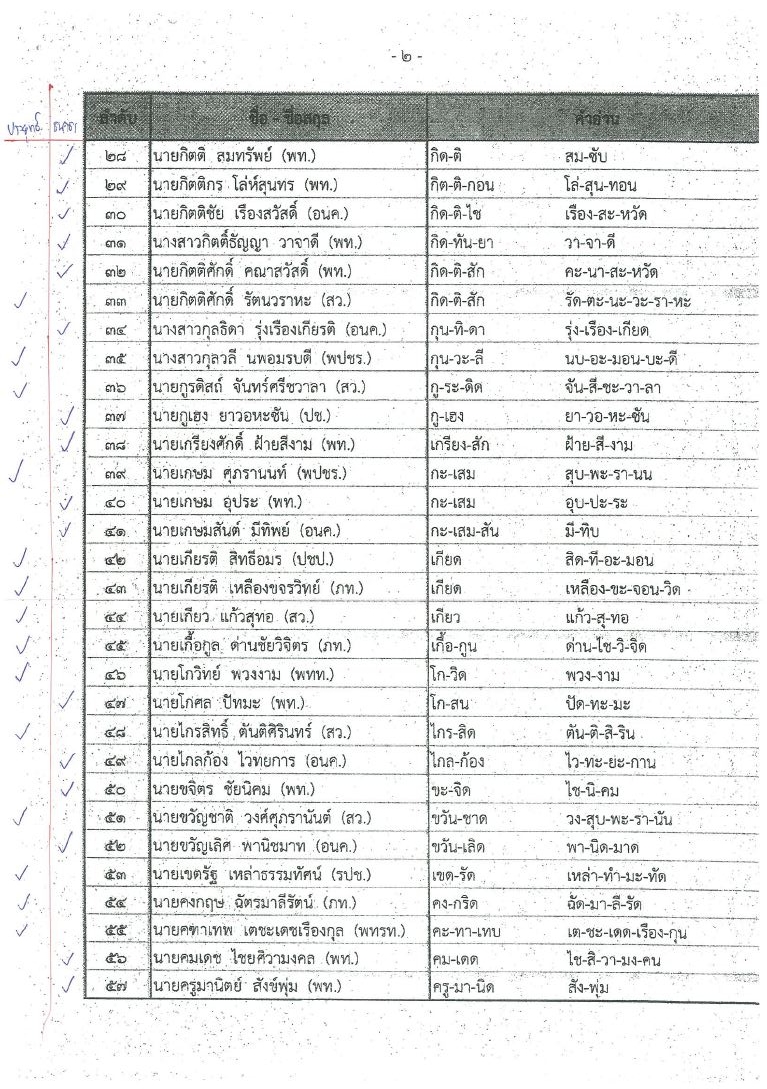 - ๒ -
ประยุทธ์ ธนาธร
ลำดับ ชื่อ - ชื่อสกุล คำอ่าน
✓ ๒๘ นายกิตติ สมทรัพย์ (พท.) กิด-ติ สม-ซับ
✓ ๒๙ นายกิตติกร โล่ห์สุนทร (พท.) กิต-ติ-กอน โล่-สุน-ทอน
✓ ๓๐ นายกิตติชัย เรืองสวัสดิ์ (อนค.) กิด-ติ-ไช เรือง-สะ-หวัด
✓ ๓๑ นางสาวกิตติ์ธัญญา วาจาดี (พท.) กิด-ทัน-ยา วา-จา-ดี
✓ ๓๒ นายกิตติศักดิ์ คณาสวัสดิ์ (พท.) กิด-ติ-สัก คะ-นา-สะ-หวัด
✓ ๓๓ นายกิตติศักดิ์ รัตนวราหะ (สว.) กิด-ติ-สัก รัด-ตะ-นะ-วะ-รา-หะ
✓ ๓๔ นางสาวกุลธิดา รุ่งเรืองเกียรติ (อนค.) กุน-ทิ-ดา รุ่ง-เรือง-เกียด
✓ ๓๕ นางสาวกุลวลี นพอมรบดี (พปชร.) กุน-วะ-ลี นบ-อะ-มอน-บะ-ดี
✓ ๓๖ นายกูรดิสถ์ จันทร์ศรีชวาลา (สว.) กู-ระ-ดิด จัน-สี-ชะ-วา-ลา
✓ ๓๗ นายกูเฮง ยาวอหะซัน (ปช.) กู-เฮง ยา-วอ-หะ-ซัน
✓ ๓๘ นายเกรียงศักดิ์ ฝ้ายสีงาม (พท.) เกรียง-สัก ฝ้าย-สี-งาม
✓ ๓๙ นายเกษม ศุภรานนท์ (พปชร.) กะ-เสม สุบ-พะ-รา-นน
✓ ๔๐ นายเกษม อุประ (พท.) กะ-เสม อุบ-ปะ-ระ
✓ ๔๑ นายเกษมสันต์ มีทิพย์ (อนค.) กะ-เสม-สัน มี-ทิบ
✓ ๔๒ นายเกียรติ สิทธีอมร (ปชป.) เกียด สิด-ที-อะ-มอน
✓ ๔๓ นายเกียรติ เหลืองขจรวิทย์ (ภท.) เกียด เหลือง-ขะ-จอน-วิด
✓ ๔๔ นายเกียว แก้วสุทอ (สว.) เกียว แก้ว-สุ-ทอ
✓ ๔๕ นายเกื้อกูล ด่านชัยวิจิตร (ภท.) เกื้อ-กูน ด่าน-ไช-วิ-จิด
✓ ๔๖ นายโกวิทย์ พวงงาม (พทท.) โก-วิด พวง-งาม
✓ ๔๗ นายโกศล ปัทมะ (พท.) โก-สน ปัด-ทะ-มะ
✓ ๔๘ นายไกรสิทธิ์ ตันติศิรินทร์ (สว.) ไกร-สิด ตัน-ติ-สิ-ริน
✓ ๔๙ นายไกลก้อง ไวทยการ (อนค.) ไกล-ก้อง ไว-ทะ-ยะ-กาน
✓ ๕๐ นายขจิตร ชัยนิคม (พท.) ขะ-จิด ไช-นิ-คม
✓ ๕๑ นายขวัญชาติ วงศ์ศุภรานันต์ (สว.) ขวัน-ชาด วง-สุบ-พะ-รา-นัน
✓ ๕๒ นายขวัญเลิศ พานิชมาท (อนค.) ขวัน-เลิด พา-นิด-มาด
✓ ๕๓ นายเขตรัฐ เหล่าธรรมทัศน์ (รปช.) เขด-รัด เหล่า-ทำ-มะ-ทัด
✓ ๕๔ นายคงกฤษ ฉัตรมาลีรัตน์ (ภท.) คง-กริด ฉัด-มา-ลี-รัด
✓ ๕๕ นายคฑาเทพ เตชะเดชเรืองกุล (พทรท.) คะ-ทา-เทบ เต-ชะ-เดด-เรือง-กุน
✓ ๕๖ นายคมเดช ไชยศิวามงคล (พท.) คม-เดด ไช-สิ-วา-มง-คน
✓ ๕๗ นายครูมานิตย์ สังข์พุ่ม (พท.) ครู-มา-นิด สัง-พุ่ม